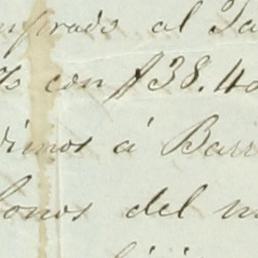 mprado al Ta
% con $38.40
dimos á Barr
bonos del m